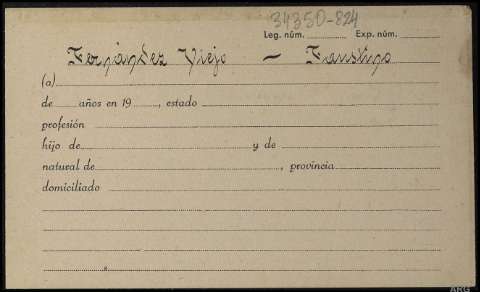 34350-824
Leg. núm. Exp. núm.
Fernández Viejo — Faustino
(a)
de años en 19 , estado
profesión
hijo de y de
natural de , provincia
domiciliado
ARG